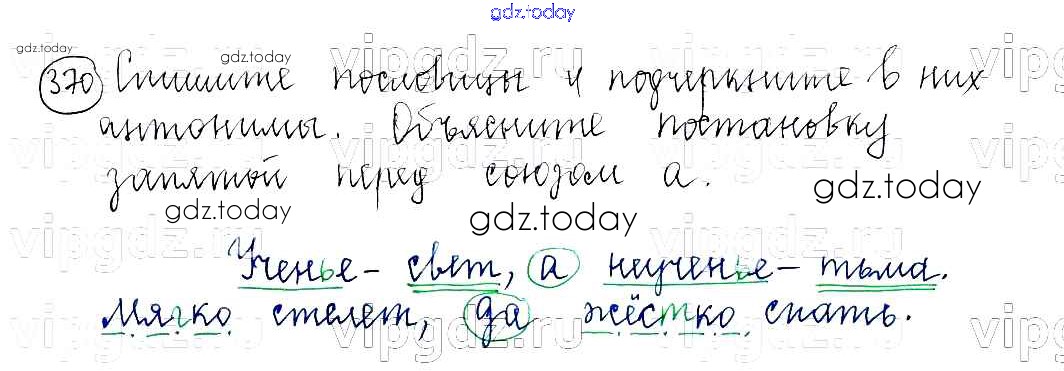 gdz.today
gdz.today
gdz.today
vipgdz.ru
370 Спишите пословицы и подчеркните в них
антонимы. Объясните постановку
запятой перед союзом а.
gdz.today
gdz.today
gdz.today
Ученье – свет, а неученье – тьма.
Мягко стелет, да жёстко спать.